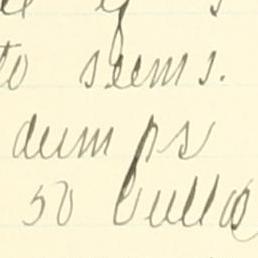 to seems.
dumps
50 bulls